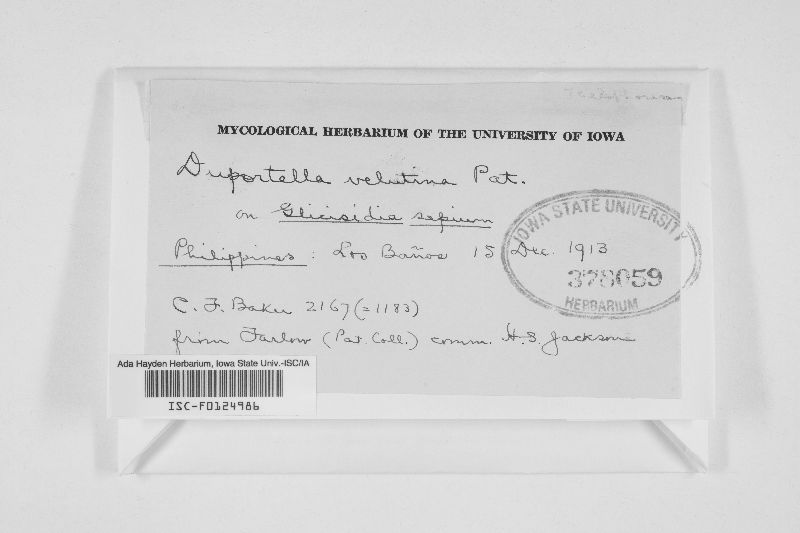 MYCOLOGICAL HERBARIUM OF THE UNIVERSITY OF IOWA
Duportella velutina Pat.
on Glicisidia sepium
Philippines : Los Baños 15 Dec. 1913
IOWA STATE UNIVERSITY
378059
HERBARIUM
C. F. Baker 2167 (=1183)
from Farlow (Pat. Coll.) comm. H. S. Jackson
Ada Hayden Herbarium, Iowa State Univ.-ISC/IA
ISC-F0124986